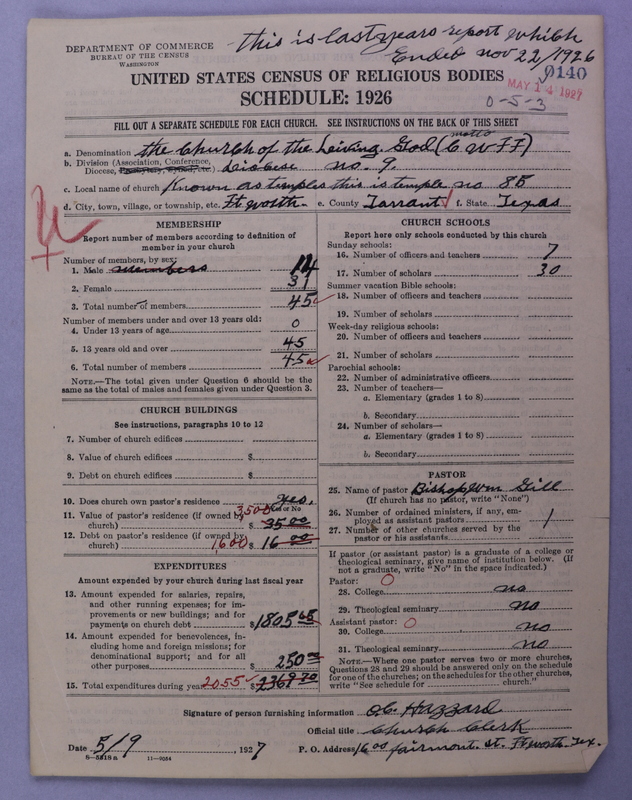 this is last years report which
Ended nov 22/1926
DEPARTMENT OF COMMERCE
BUREAU OF THE CENSUS
WASHINGTON
0140
MAY 14 1927
UNITED STATES CENSUS OF RELIGIOUS BODIES
0-5-3
SCHEDULE: 1926
FILL OUT A SEPARATE SCHEDULE FOR EACH CHURCH. SEE INSTRUCTIONS ON THE BACK OF THIS SHEET
a. Denomination the Church of the Living God (motto C W F F)
b. Division (Association, Conference, Diocese, Presbytery, Synod, etc.) Diocese no. 9.
c. Local name of church Known as temples this is temple no 85
d. City, town, village, or township, etc. Ft. worth. e. County Tarrant f. State Texas
MEMBERSHIP
Report number of members according to definition of
member in your church
Number of members, by sex:
1. Male members 14
2. Female 31
3. Total number of members 45
Number of members under and over 13 years old:
4. Under 13 years of age 0
5. 13 years old and over 45
6. Total number of members 45
NOTE.—The total given under Question 6 should be the
same as the total of males and females given under Question 3.
CHURCH BUILDINGS
See instructions, paragraphs 10 to 12
7. Number of church edifices
8. Value of church edifices $
9. Debt on church edifices $
10. Does church own pastor's residence yes.
Yes or No
11. Value of pastor's residence (if owned by
church) 3500 $ 35 00
12. Debt on pastor's residence (if owned by
church) 1600 $ 16 00
EXPENDITURES
Amount expended by your church during last fiscal year
13. Amount expended for salaries, repairs,
and other running expenses; for im-
provements or new buildings; and for
payments on church debt $1805
14. Amount expended for benevolences, in-
cluding home and foreign missions; for
denominational support; and for all
other purposes $ 250
15. Total expenditures during year 2055 $ 2369 70
CHURCH SCHOOLS
Report here only schools conducted by this church
Sunday schools:
16. Number of officers and teachers 7
17. Number of scholars 30
Summer vacation Bible schools:
18. Number of officers and teachers
19. Number of scholars
Week-day religious schools:
20. Number of officers and teachers
21. Number of scholars
Parochial schools:
22. Number of administrative officers
23. Number of teachers—
a. Elementary (grades 1 to 8)
b. Secondary
24. Number of scholars—
a. Elementary (grades 1 to 8)
b. Secondary
PASTOR
25. Name of pastor Bishop Wm Gill
(If church has no pastor, write "None")
26. Number of ordained ministers, if any, em-
ployed as assistant pastors 1
27. Number of other churches served by the
pastor or his assistants
If pastor (or assistant pastor) is a graduate of a college or
theological seminary, give name of institution below. (If
not a graduate, write "No" in the space indicated.)
Pastor: 0
28. College no
29. Theological seminary no
Assistant pastor: 0
30. College no
31. Theological seminary no
NOTE.—Where one pastor serves two or more churches,
Questions 28 and 29 should be answered only on the schedule
for one of the churches; on the schedules for the other churches,
write "See schedule for church."
Signature of person furnishing information O.C. Hazzard
Official title Church Clerk
Date 5/9, 1927 P. O. Address 1600 fairmont. st. Ft worth. Tex.
8-5518a 11-9084